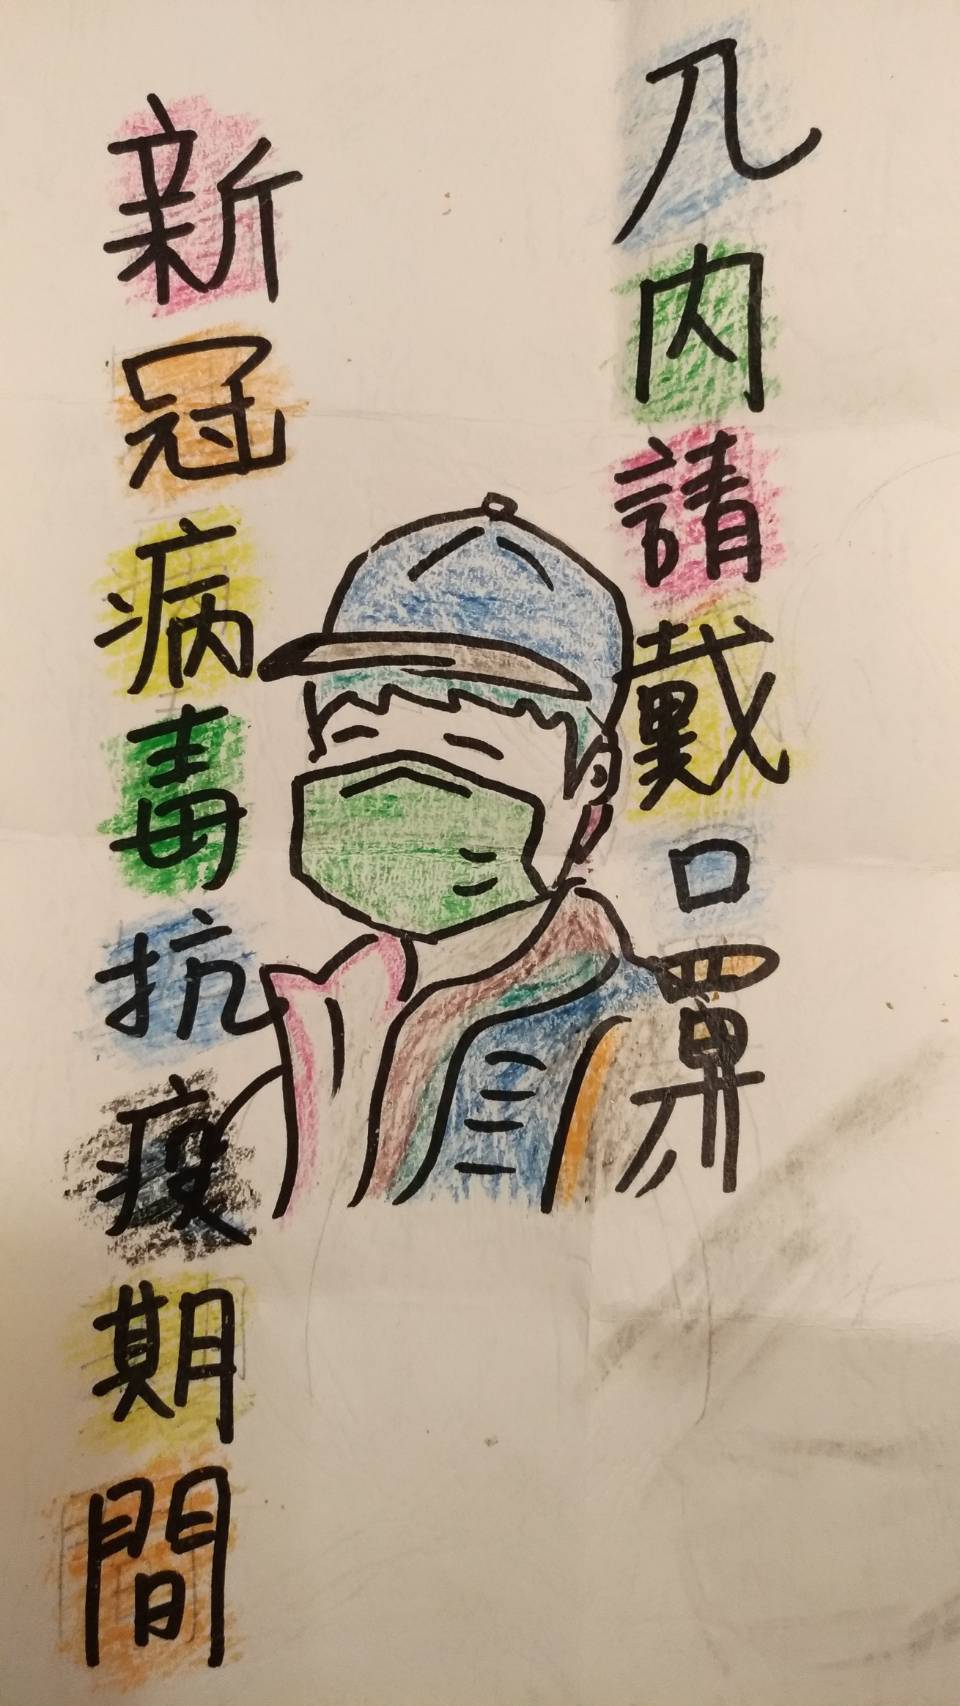 新冠病毒抗疫期間
入內請戴口罩